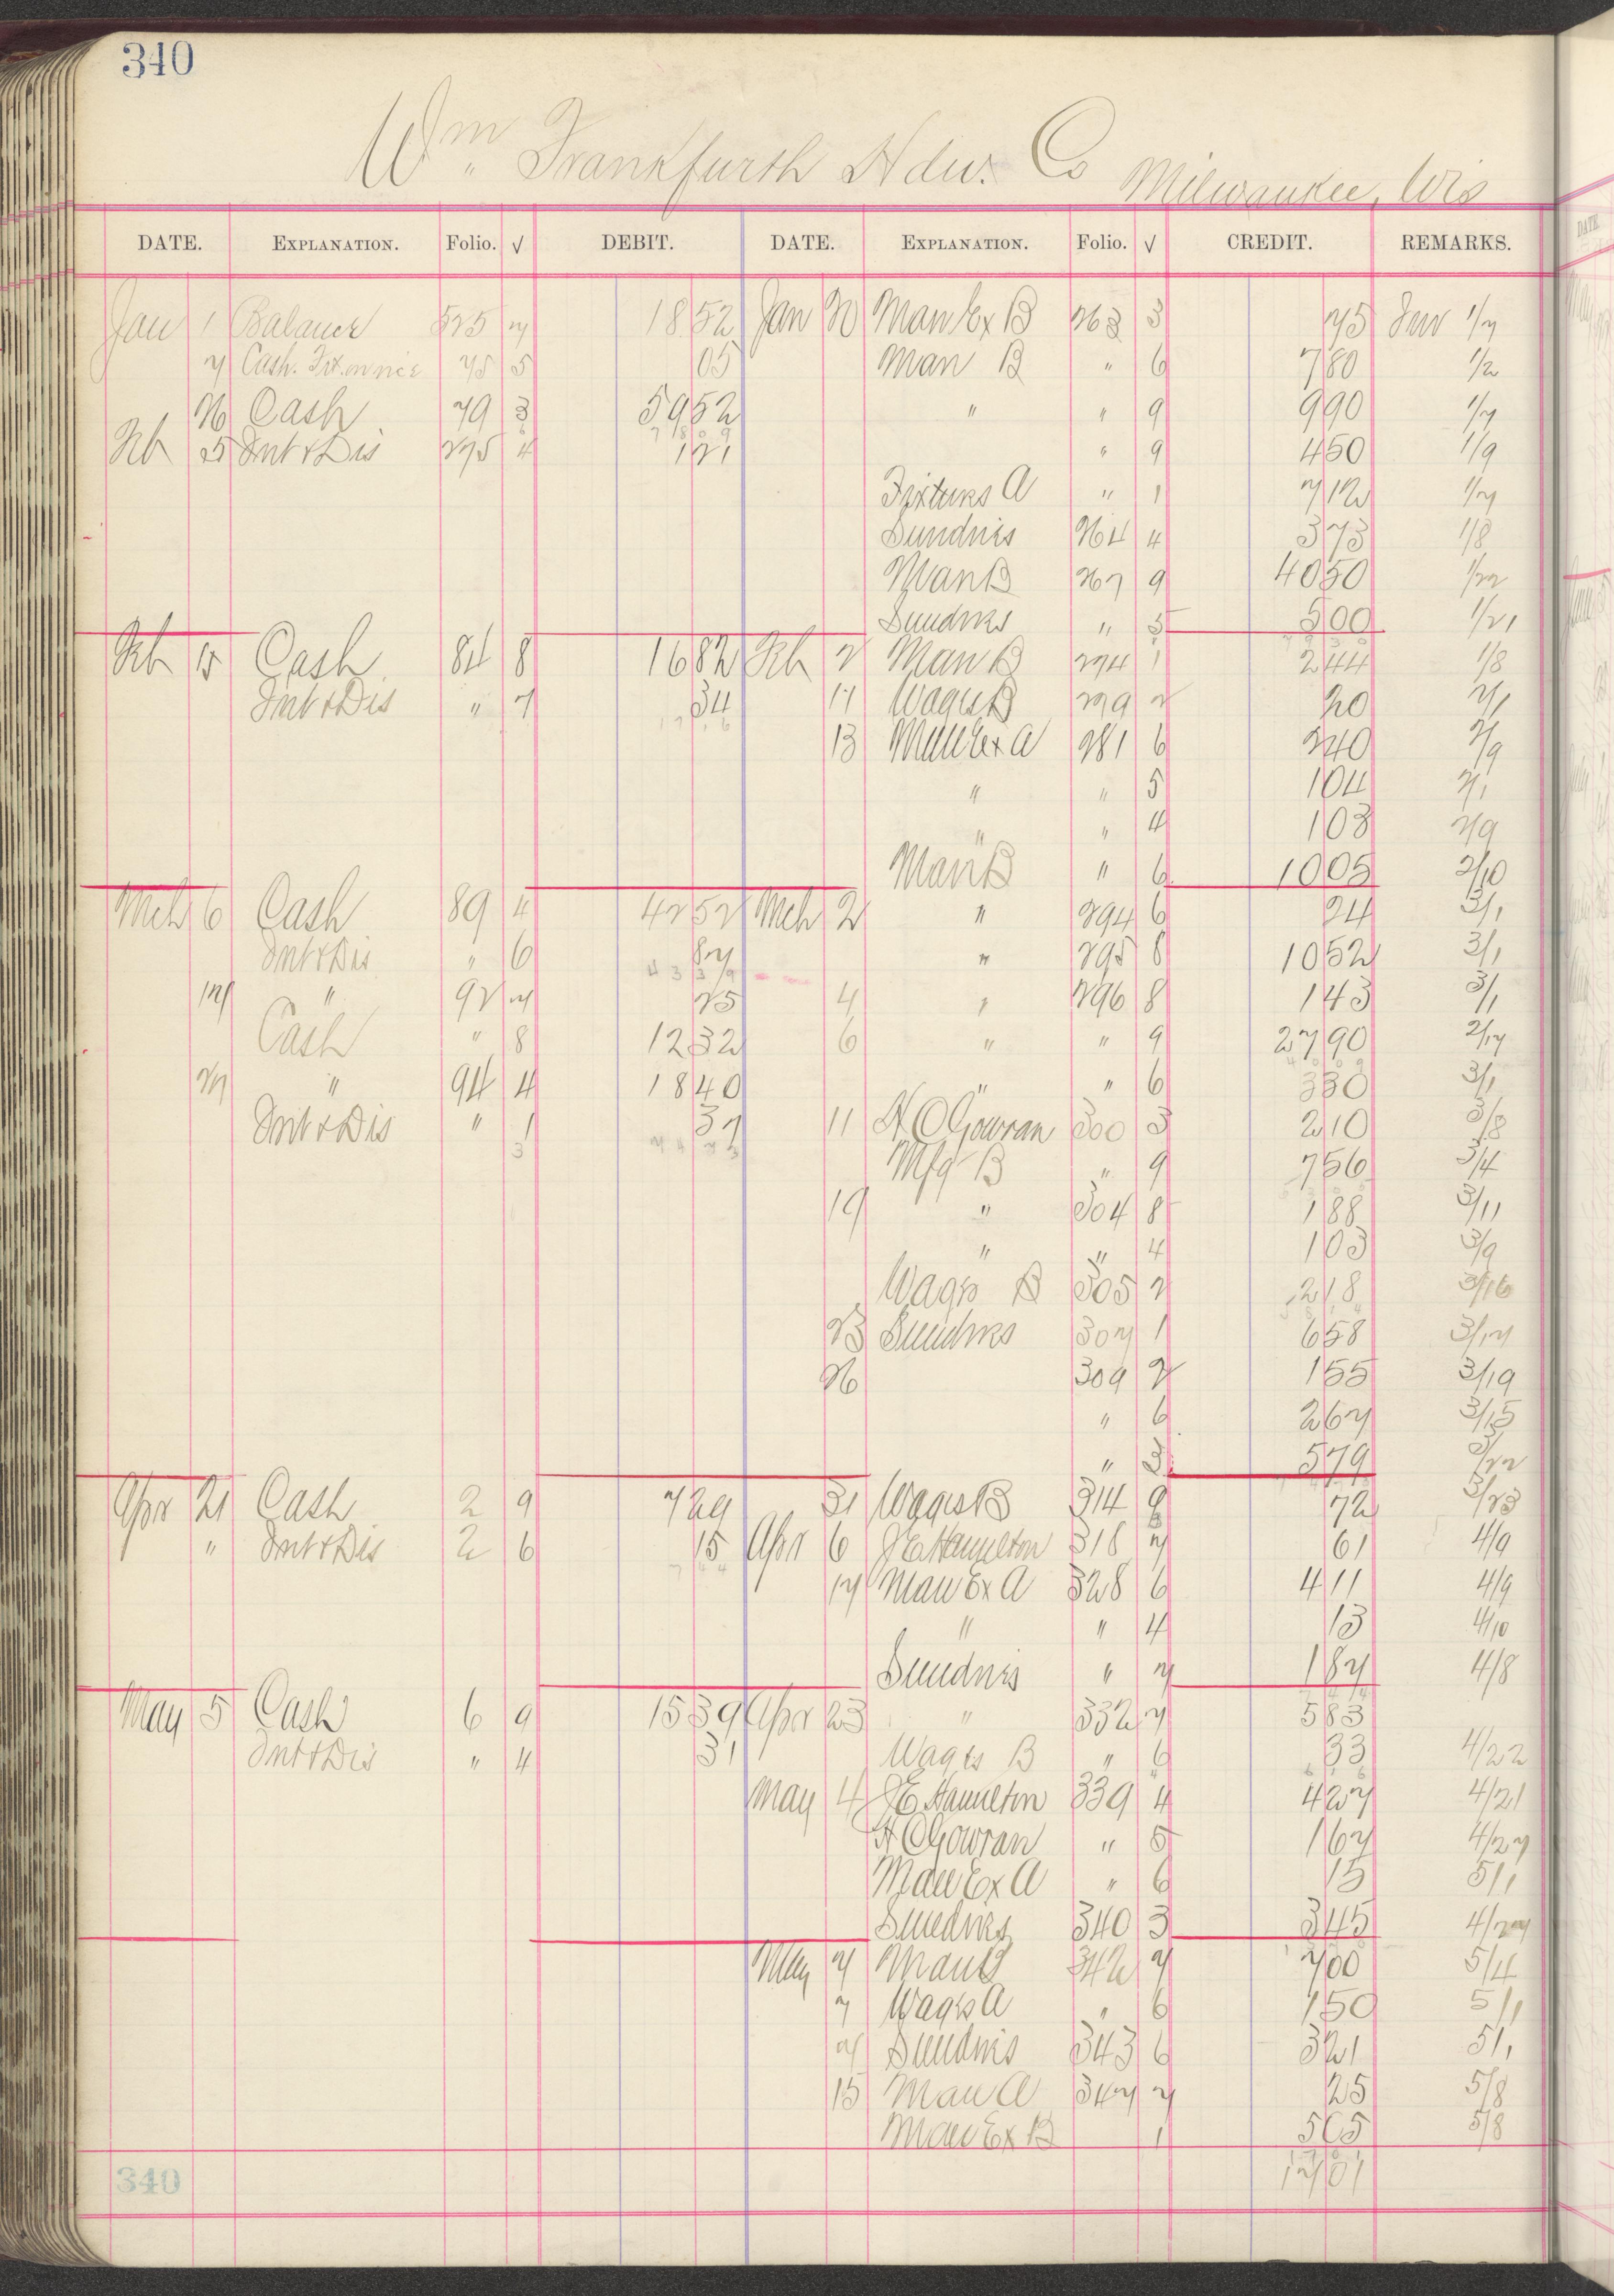 340
Wm. Frankfurth Hdw. Co Milwaukee, Wis
DATE. EXPLANATION. Folio. √ DEBIT. DATE. EXPLANATION. Folio. √ CREDIT. REMARKS.
Jan 1 Balance 525 7 1852 Jan 20 Man Ex B 263 3 75 Inv 1/7
7 Cash. 75 5 05 Man B " 6 780 1/2
26 Cash 79 3 5952 " " 9 990 1/7
Feb 25 Int & Dis 275 4 121 " 9 450 1/9
Fixtures A " 1 712 1/7
Sundries 264 4 373 1/8
Man B 267 9 4050 1/22
Sundries " 5 500 1/21
Feb 15 Cash 84 8 1682 Feb 2 Man B 274 1 244 1/8
Int & Dis " 7 34 11 Wages B 279 2 20 2/1
13 Man Ex A 281 6 240 2/9
" " 5 104 2/1
" " 4 103 2/9
Man B " 6 1005 2/10
Mch 6 Cash 89 4 4252 Mch 2 " 294 6 24 3/1
Int & Dis " 6 87 " 295 8 1052 3/1
17 " 92 7 25 4 " 296 8 143 3/1
Cash " 8 1232 6 " " 9 2790 2/17
27 " 94 4 1840 " " 6 330 3/1
Int & Dis " 1 37 11 H C Gowran 300 3 210 3/8
Mfg B " 9 756 3/4
19 " 304 8 188 3/11
" " 4 103 3/9
Wages B 305 2 218 3/16
23 Sundries 307 1 658 3/17
26 309 2 155 3/19
" 6 267 3/15
" 3 579 3/22
Apr 21 Cash 2 9 729 31 Wages B 314 9 72 3/23
" Int & Dis 2 6 15 Apr 6 J E Hamilton 318 7 61 4/9
17 Man Ex A 328 6 411 4/9
" " 4 13 4/10
Sundries " 7 187 4/8
May 5 Cash 6 9 1539 Apr 23 " 332 7 583
Int & Dis " 4 31 Wages B " 6 33 4/22
May 4 J E Hamilton 339 4 427 4/21
H C Gowran " 5 167 4/27
Man Ex A " 6 15 5/1
Sundries 340 3 345 4/27
May 7 Man B 342 7 700 5/4
7 Wages A " 6 150 5/1
Sundries 343 6 321 5/1
15 Man A 347 7 25 5/8
Man Ex B 1 565 5/8
340